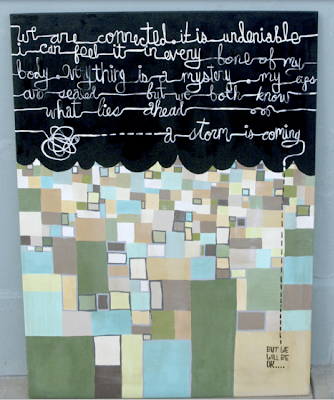 we are connected it is undeniable
i can feel it in every bone of my
body. everything is a mystery. my lips
are sealed but we both know
what lies ahead
a storm is coming
BUT WE
WILL BE
OK.....